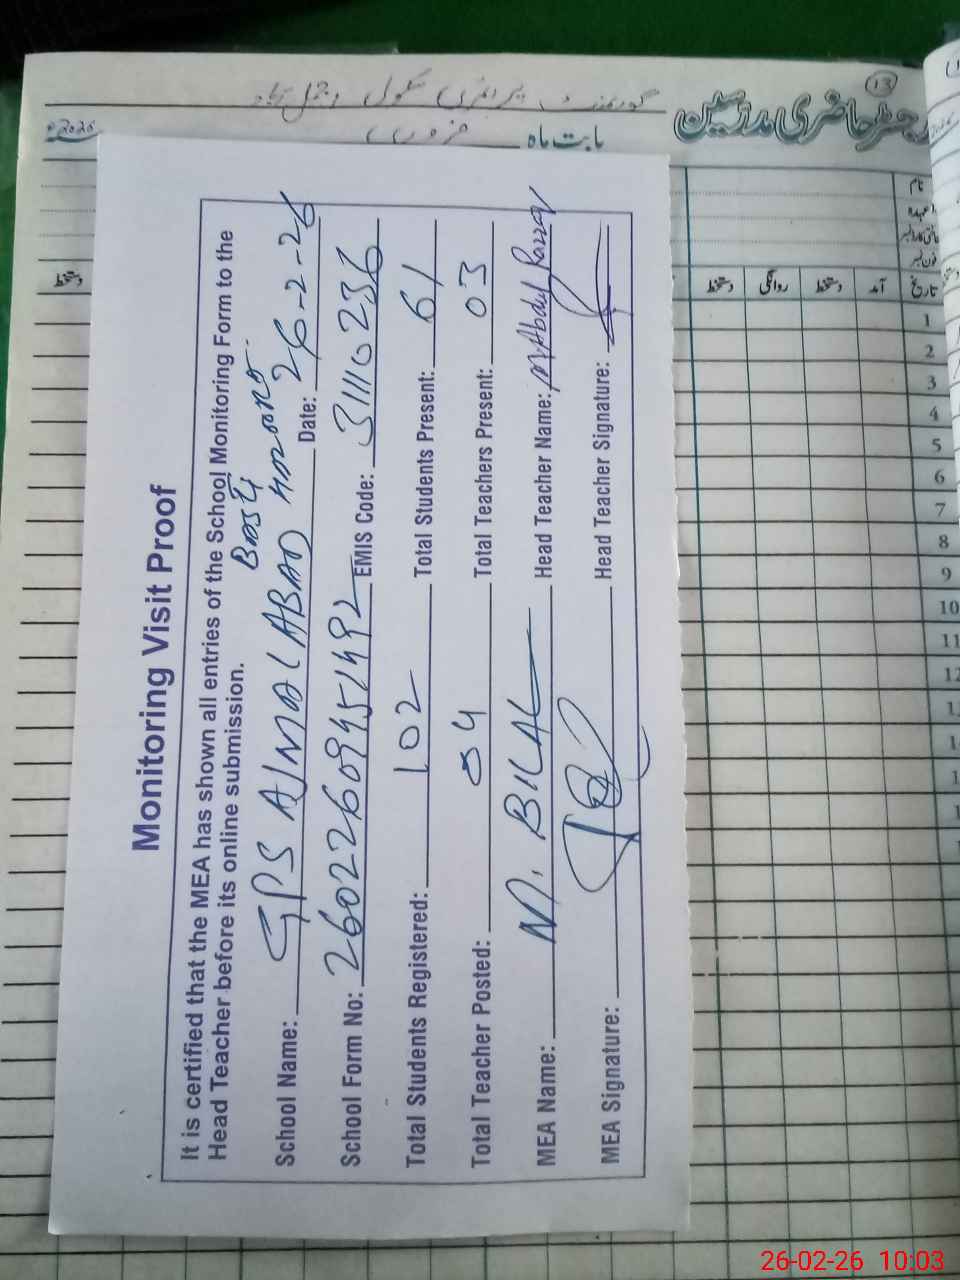 ۱۳
رجسٹر حاضری مدرسین
گورنمنٹ پرائمری سکول
بابت ماہ فروری 2026ء
نام
عہدہ
فون نمبر
تاریخ آمد دستخط روانگی دستخط
دستخط
1
2
3
4
5
6
7
8
9
10
11
Monitoring Visit Proof
It is certified that the MEA has shown all entries of the School Monitoring Form to the
Head Teacher before its online submission.
Basti
School Name: GPS AJMAL ABAD Date: 26-2-26
School Form No: 26022609451492 EMIS Code: 31110236
Total Students Registered: 102 Total Students Present: 61
Total Teacher Posted: 04 Total Teachers Present: 03
MEA Name: M. BILAL Head Teacher Name: M Abdul Razzaq
MEA Signature: Head Teacher Signature:
26-02-26 10:03